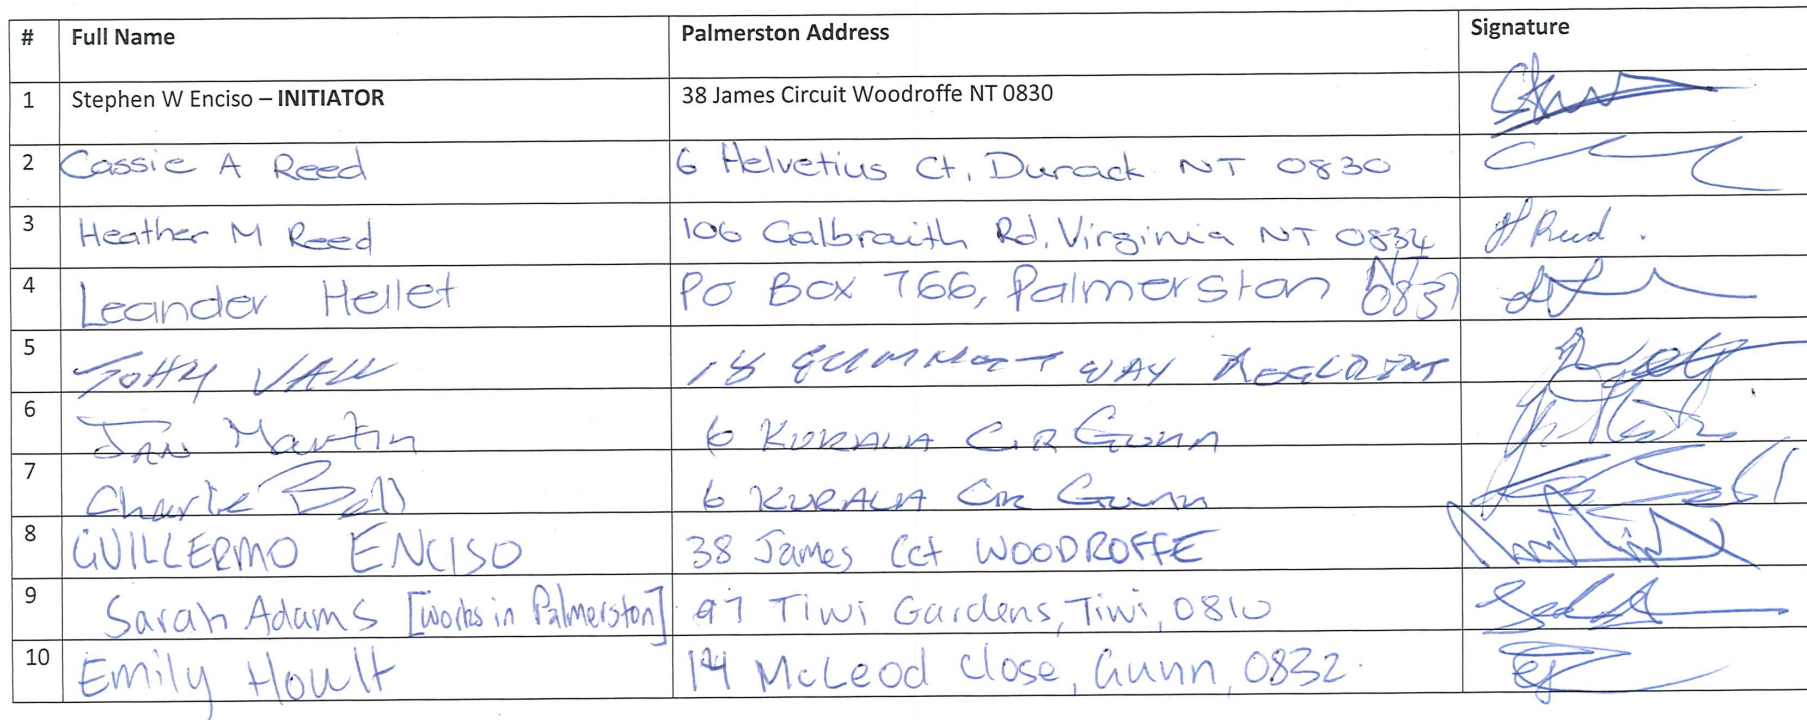 # Full Name Palmerston Address Signature
1 Stephen W Enciso – INITIATOR 38 James Circuit Woodroffe NT 0830
2 Cassie A Reed 6 Helvetius Ct, Durack NT 0830
3 Heather M Reed 106 Galbraith Rd, Virginia NT 0834 H Reed.
4 Leander Hellet PO Box 766, Palmerston NT 0831
5 18 WAY
6 Jan Martin 6 KURALIA CIR Gunn
7 Charlie Bell 6 KURALIA CIR Gunn
8 GUILLERMO ENCISO 38 James Cct WOODROFFE
9 Sarah Adams [works in Palmerston] 97 Tiwi Gardens, Tiwi, 0810
10 Emily Hoult 14 McLeod Close, Gunn, 0832.